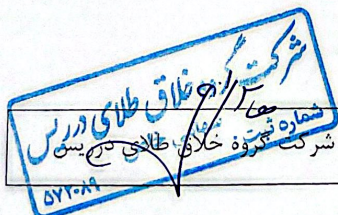 شرکت گروه خلاق طلای درریس
شماره ثبت
۵۷۲۰۸۹
شرکت گروه خلاق طلای درریس